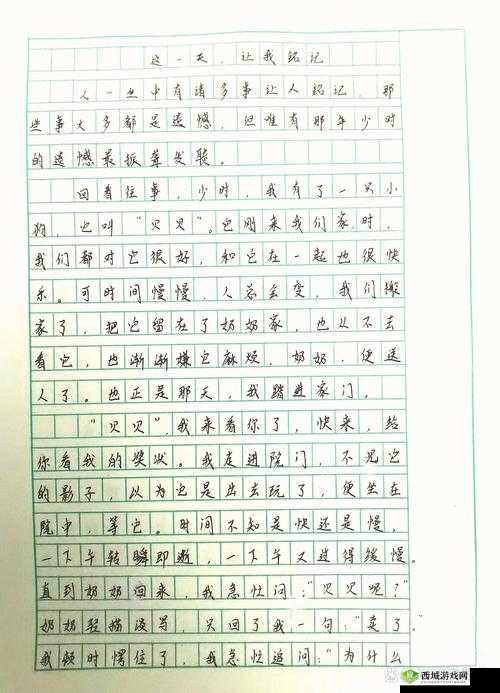 这一天，让我铭记
人一生中有诸多事让人铭记，那
些事大多都是遗憾，但唯有那年少时
的遗憾最振聋发聩。
回看往事，少时，我有了一只小
狗，它叫“贝贝”。它刚来我们家时，
我们都对它很好，和它在一起也很快
乐。可时间慢慢，人总会变，我们搬
家了，把它留在了奶奶家，也从不去
看它，也渐渐嫌它麻烦，奶奶，便送
人了。也正是那天，我踏进家门，
“贝贝”，我来看你了，快来，给
你看我的奖状。我走进院门，不见它
的影子，以为它是出去玩了，便坐在
院中，等它。时间不知是快还是慢，
一下午转瞬即逝，一下午又过得缓慢。
直到奶奶回来，我急忙问：“贝贝呢？”
奶奶轻描淡写，只回了我一句：“卖了。”
我顿时愣住了，我急忙追问：“为什么
西城游戏网